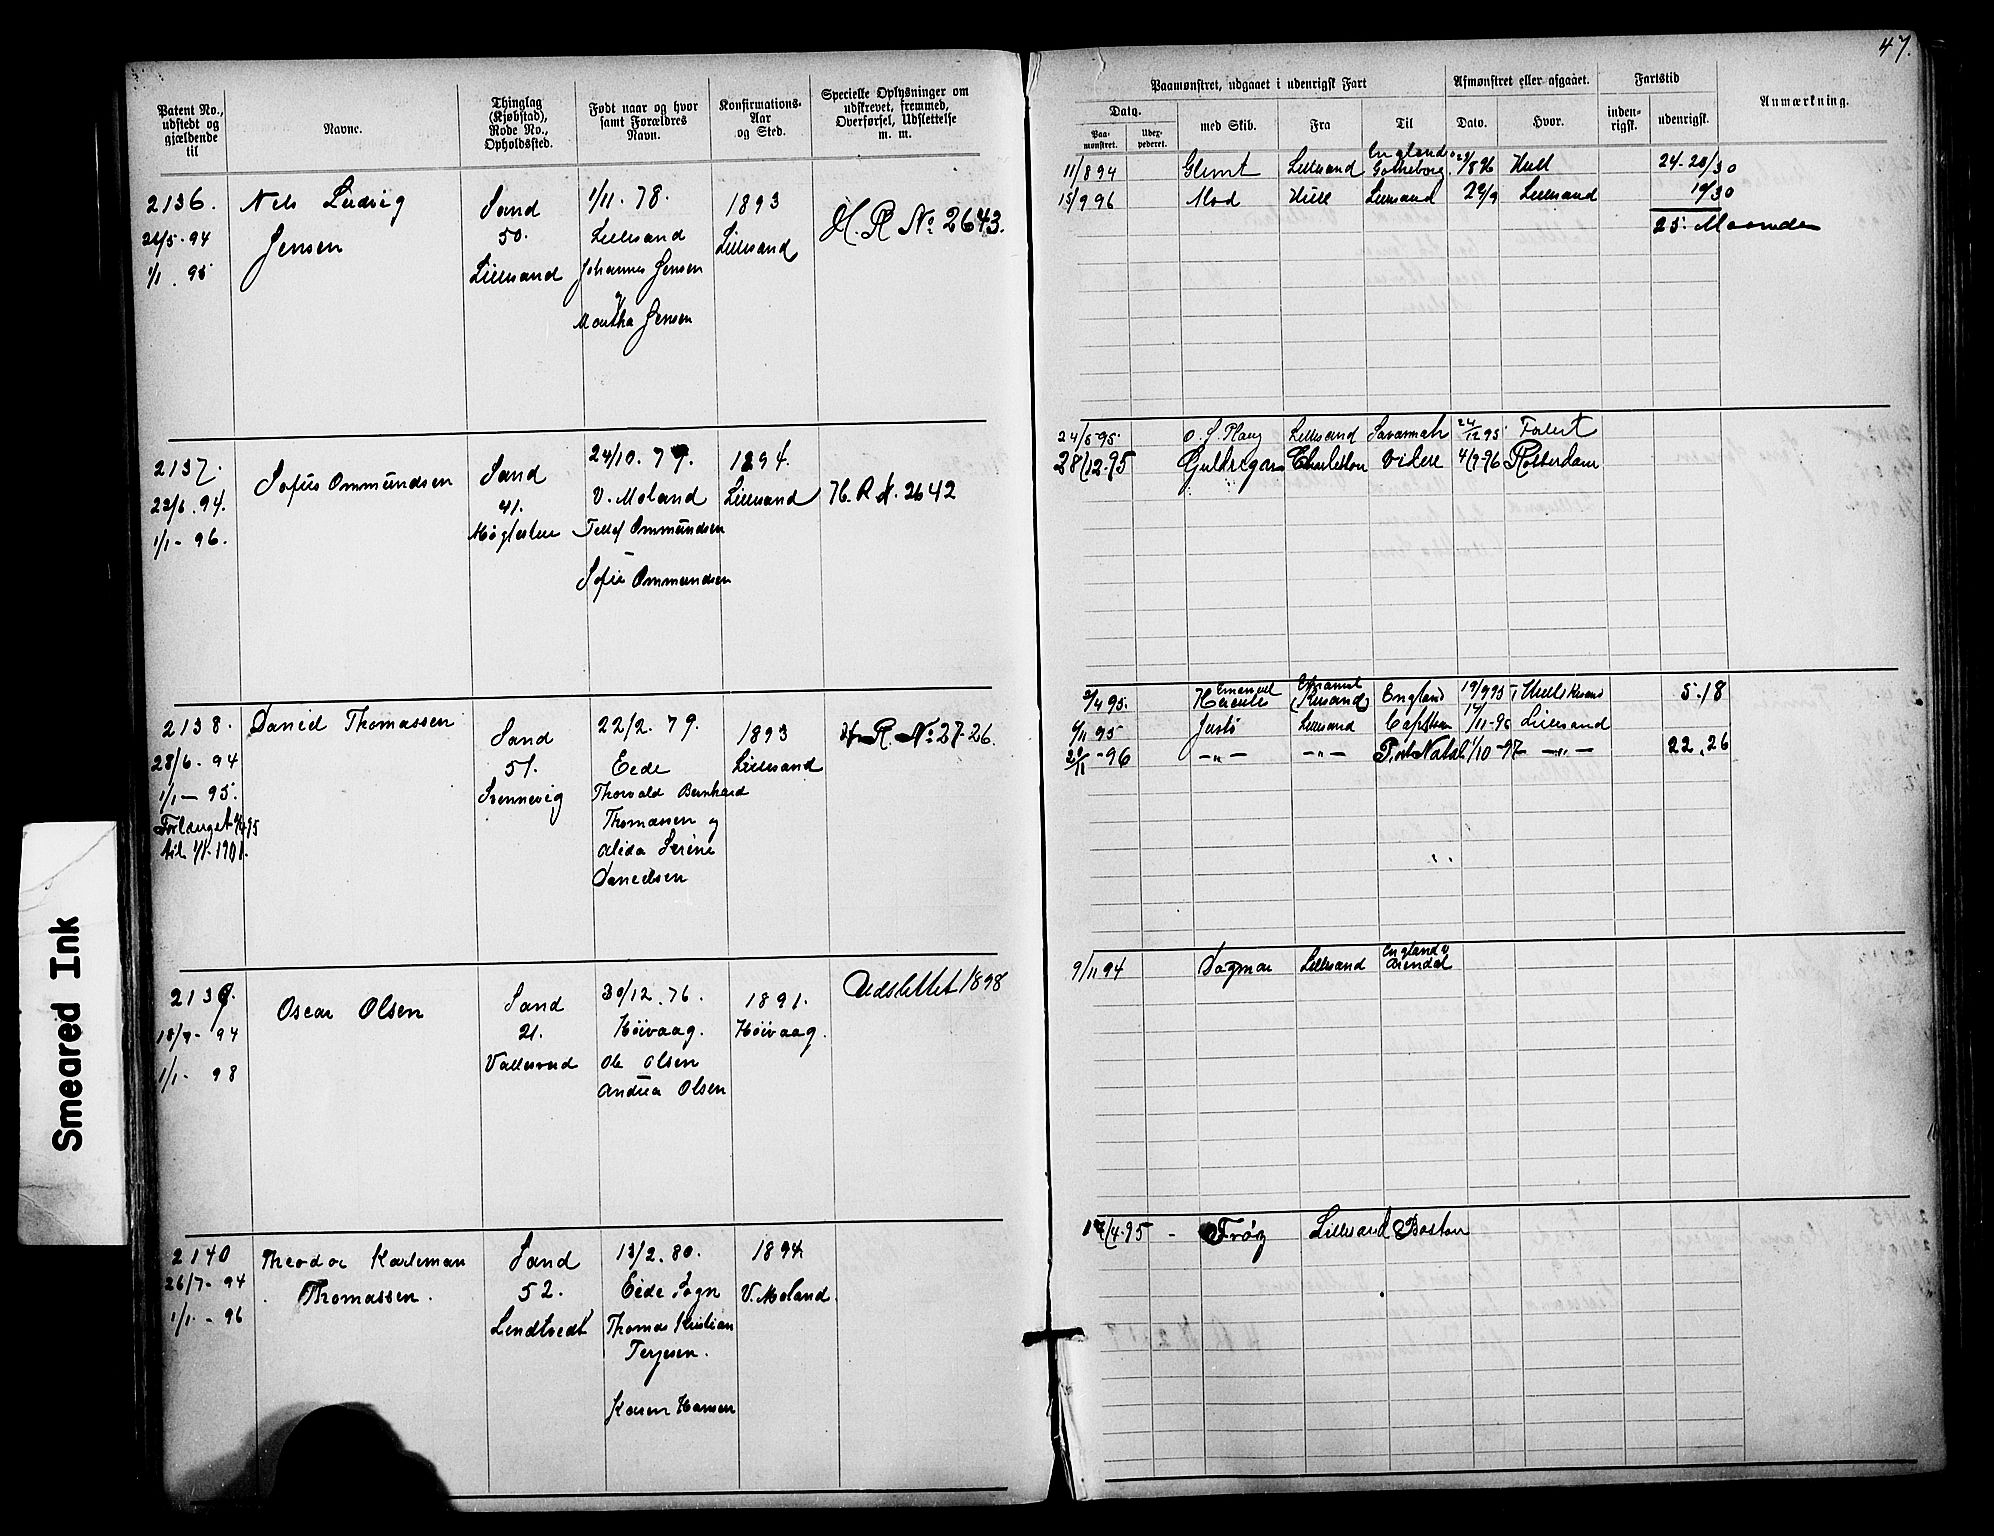 47.
Patent No.,
udstedt og
gjældende
til
Navne.
Thinglag
(Kjøbstad),
Rode No.,
Opholdssted.
Født naar og hvor
samt Forældres
Navn.
Konfirmations-
Aar
og Sted.
Specielle Oplysninger om
udskrevet, fremmed,
Overførsel, Udslettelse
m. m.
Paamønstret, udgaaet i udenrigsk Fart
Afmønstret eller afgaaet.
Fartstid
Anmærkning.
Dato.
Paa-
mønstret.
Udex-
pederet.
med Skib.
Fra
Til
Dato.
Hvor.
inden-
rigsk.
udenrigsk.
2136.
1/1. 95
Nels Ludvig
Jensen
Sand
50.
Lillesand
1/11. 78.
Lillesand
Johannes Jensen
og
Martha Jensen
1893
Lillesand
H. R No. 2643.
11/8 94 Glimt Lillesand England Gotheborg Hull 24-20/30
15/9 96 Mod Hull Lillesand 29/9 Lillesand 19/30
25. Maaneder
2137.
22/6. 94.
1/1 - 96.
Sofus Ommundsen
Sand
41.
24/10. 79.
V. Moland
Tellef Ommundsen
Sofie Ommundsen
1894.
Lillesand
H. R N. 2642
24/5 95. Lillesand Savannah 24/12 95
28/12-95 Charleston videre 4/7-96 Rotterdam
2138.
28/6. 94
1/1 - 95.
Forlænget
til 1/1-1901.
Daniel Thomassen
Sand
51.
Svennevig
22/2. 79.
Eide
Thorvald Bernhard
Thomassen og
Alida Serine
Danielsen
1893
Lillesand
H. R. No: 27-26.
2/4 95. Emanuel Hercules Kr.sand England 19/9 95 5.18
6/11 95 Lillesand 17/11-96 Lillesand
-96 -"- -"- Port Natal 1/10-97 -"- 22.26
2139.
94
1/1- 98
Oscar Olsen
Sand
21.
Vallesverd
30/12. 76.
Höivaag.
Ole Olsen
Andrea Olsen
1891.
Höivaag.
Udslettet 1898
9/11 94 Dagmar Lillesand England & Arendal
2140
26/7- 94
1/1. - 96
Theodor Karleman
Thomassen.
Sand
52.
Lendtvedt
13/2. 80.
Eide Sogn
Thomas Kristian
Terjesen.
Karen Hansen
1894.
V. Moland.
17/4.95 - Lillesand Boston
Smeared Ink